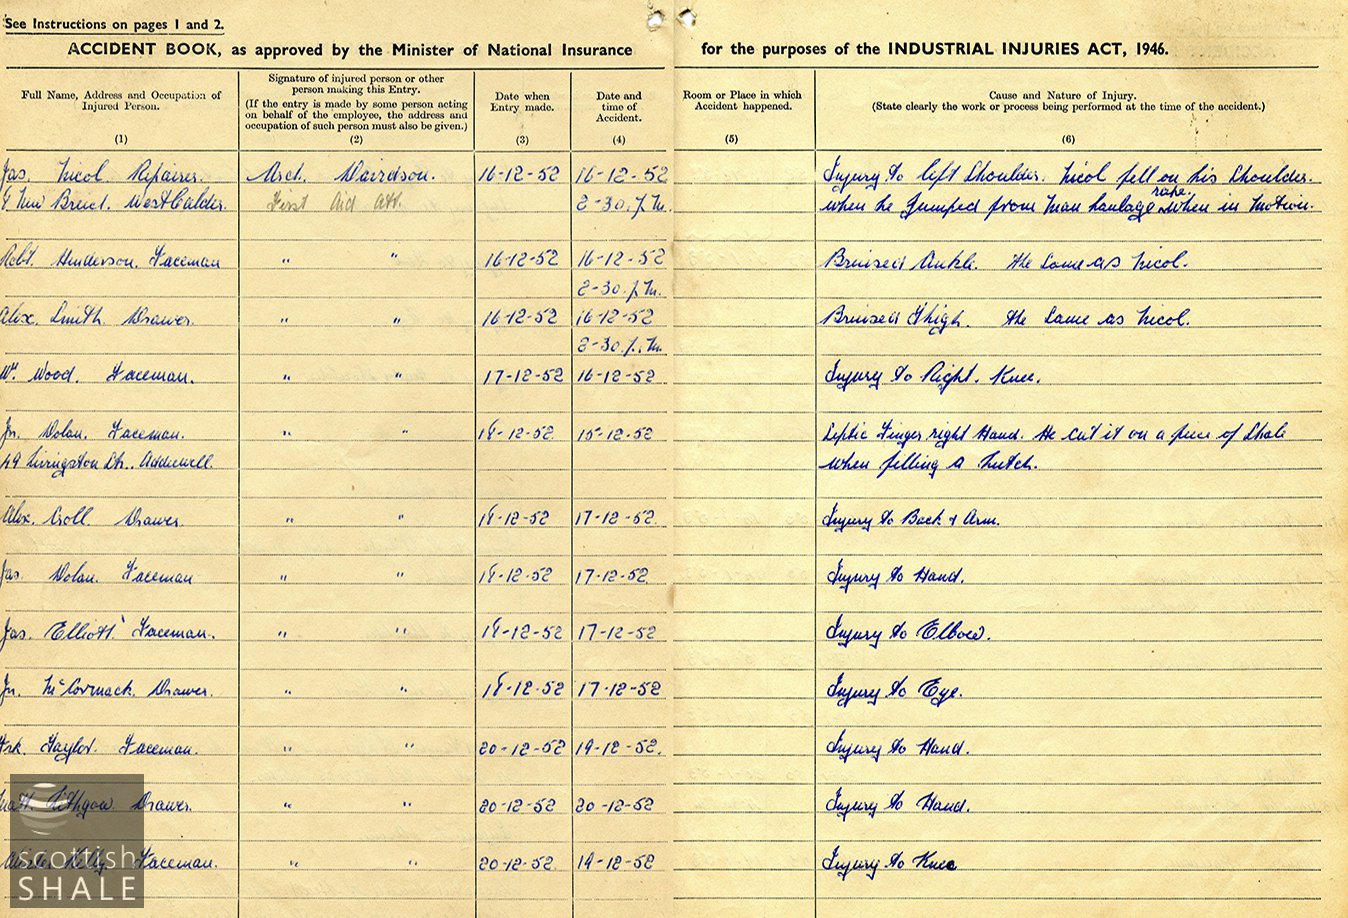 See Instructions on pages 1 and 2.
ACCIDENT BOOK, as approved by the Minister of National Insurance for the purposes of the INDUSTRIAL INJURIES ACT, 1946.
Full Name, Address and Occupation of Injured Person. (1)
Signature of injured person or other person making this Entry. (If the entry is made by some person acting on behalf of the employee, the address and occupation of such person must also be given.) (2)
Date when Entry made. (3)
Date and time of Accident. (4)
Room or Place in which Accident happened. (5)
Cause and Nature of Injury. (State clearly the work or process being performed at the time of the accident.) (6)
Jas. Nicol Repairer. Arch. Davidson. 16-12-52 16-12-52 Injury to left Shoulder. Nicol fell on his Shoulder.
New Breich. West Calder. First Aid Att. 2-30. P.M. when he Jumped from Man haulage rope. when in Motion.
Robt. Henderson. Faceman " " 16-12-52 16-12-52 Bruised Ankle. The Same as Nicol.
2-30. P.M.
Alex. Smith Drawer. " " 16-12-52 16-12-52 Bruised Thigh. The Same as Nicol.
2-30. P.M.
Wm. Wood. Faceman. " " 17-12-52 16-12-52 Injury to Right. Knee.
Jn. Dolan. Faceman. " " 18-12-52 15-12-52 Septic Finger right Hand. He cut it on a piece of Shale
49 Livingston St.. Addiewell. when filling a hutch.
Alex. Croll. Drawer. " " 18-12-52 17-12-52. Injury to Back & Arm.
Jas. Dolan. Faceman " " 18-12-52 17-12-52. Injury to Hand.
Jas. Elliott. Faceman. " " 18-12-52 17-12-52 Injury to Elbow.
Jn. McCormack. Drawer. " " 18-12-52 17-12-52 Injury to Eye.
Frk. Taylor. Faceman. " " 20-12-52 19-12-52. Injury to Hand.
Matt. Lithgow. Drawer. " " 20-12-52 20-12-52 Injury to Hand.
Kelly. Faceman. " " 20-12-52. 19-12-52 Injury to Knee
scottish
SHALE